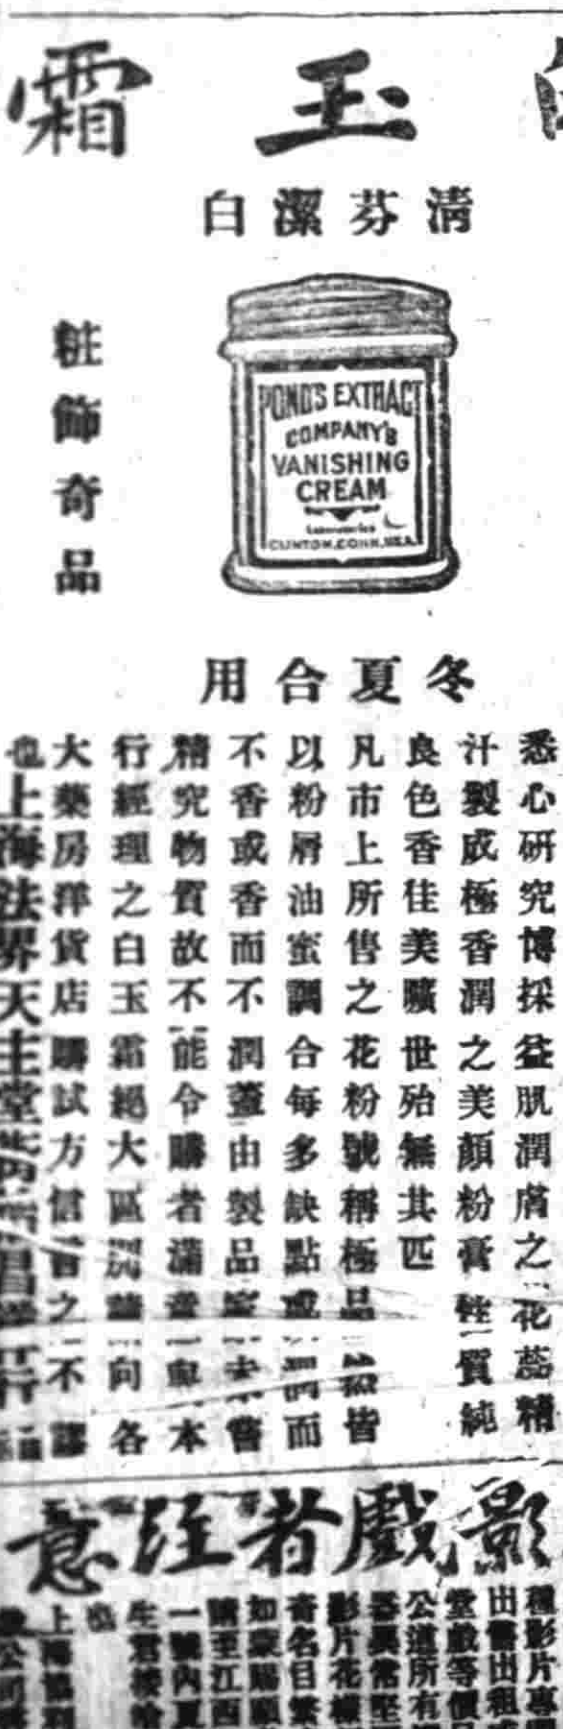 玉霜
清芬潔白
粧飾奇品
POND'S EXTRACT
COMPANY'S
VANISHING
CREAM
Laboratories
CLINTON, CONN. U.S.A.
冬夏合用
悉心研究博採益肌潤膚之花蕊精
汁製成極香潤之美顏粉膏性質純
良色香佳美曠世殆無其匹
凡市上所售之花粉號稱極品然皆
以粉屑油蜜調合每多缺點或潤而
不香或香而不潤蓋由製品家未嘗
精究物質故不能令購者滿意本
行經理之白玉霜絕大區別請向各
大藥房洋貨店購試方信言之不謬
也上海法界天主堂街
影戲者注意
種影片專
出售出租
堂戲等價
公道所有
器異常至
影片花樣
奇名目繁
如蒙賜顧
請至江西
一號內夏
生君接洽
也
上海